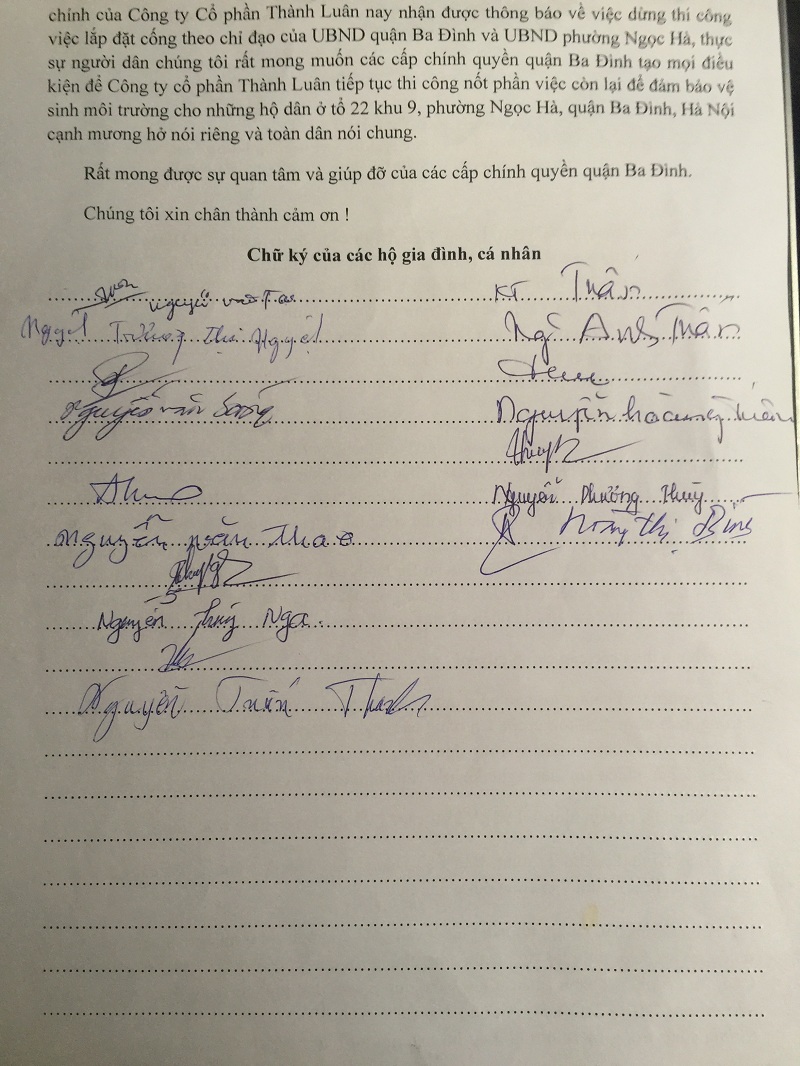 chính của Công ty Cổ phần Thành Luân nay nhận được thông báo về việc dừng thi công
việc lắp đặt cống theo chỉ đạo của UBND quận Ba Đình và UBND phường Ngọc Hà, thực
sự người dân chúng tôi rất mong muốn các cấp chính quyền quận Ba Đình tạo mọi điều
kiện để Công ty cổ phần Thành Luân tiếp tục thi công nốt phần việc còn lại để đảm bảo vệ
sinh môi trường cho những hộ dân ở tổ 22 khu 9, phường Ngọc Hà, quận Ba Đình, Hà Nội
cạnh mương hở nói riêng và toàn dân nói chung.
Rất mong được sự quan tâm và giúp đỡ của các cấp chính quyền quận Ba Đình.
Chúng tôi xin chân thành cảm ơn !
Chữ ký của các hộ gia đình, cá nhân
KT Trân
Nguyệt Trương Thị Nguyệt Ngô Anh Trân
Nguyễn văn Nguyễn
Nguyễn Phương Thúy
Nguyễn Thao Hoàng Thị
Nguyễn Thúy Nga
Nguyễn